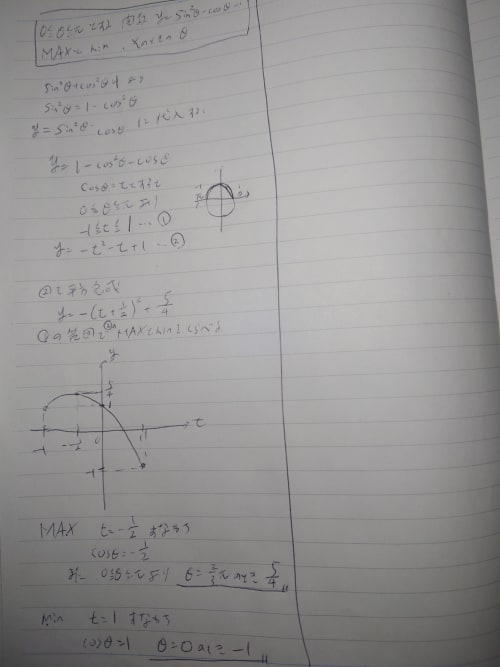 0≦θ≦π y=sin²θ-cosθ
MAX min θ
sin²θ+cos²θ=1 より
sin²θ=1-cos²θ
y=sin²θ-cosθ に代入する
y=1-cos²θ-cosθ
cosθ=tとすると
0≦θ≦πより
-1≦t≦1…①
y=-t²-t+1…②
②を平方完成
y=-(t+1/2)²+5/4
①の範囲で②のMAXとminを
y
5/4
1
t
-1 -1/2 0 1
-1
MAX t=-1/2 すなわち
cosθ=-1/2
0≦θ≦πより θ=2/3π のとき 5/4
min t=1 すなわち
cosθ=1 θ=0のとき -1